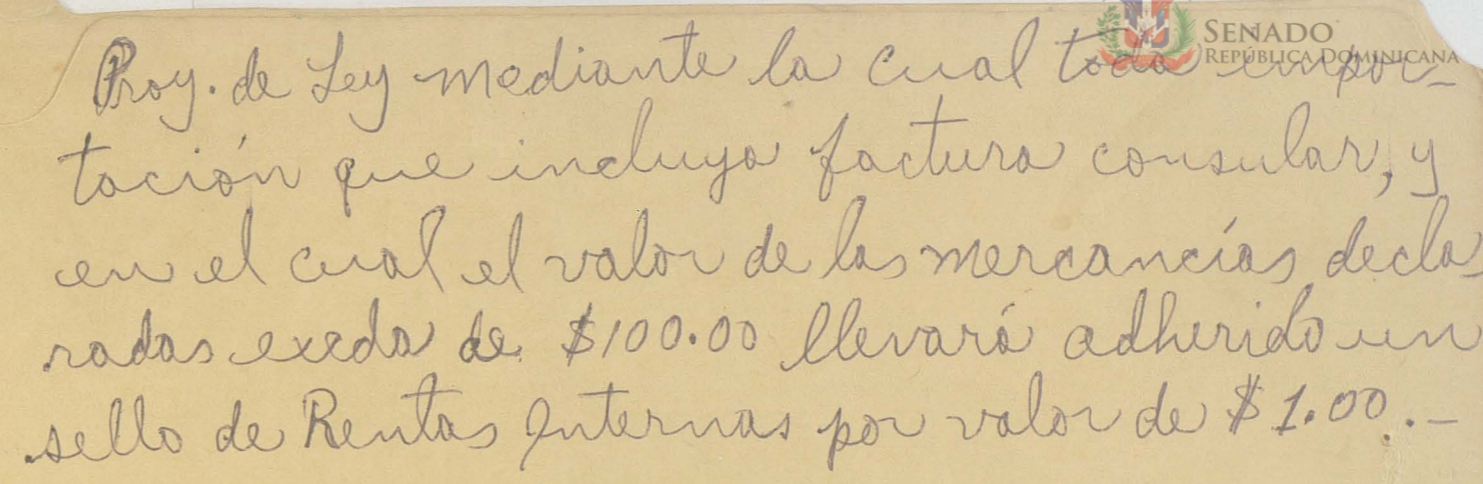 SENADO
REPÚBLICA DOMINICANA
Proy. de Ley mediante la cual toda impor-
tación que incluya factura consular, y
en el cual el valor de las mercancías decla
radas exeda de $100.00 llevará adherido un
sello de Rentas Internas por valor de $1.00.-